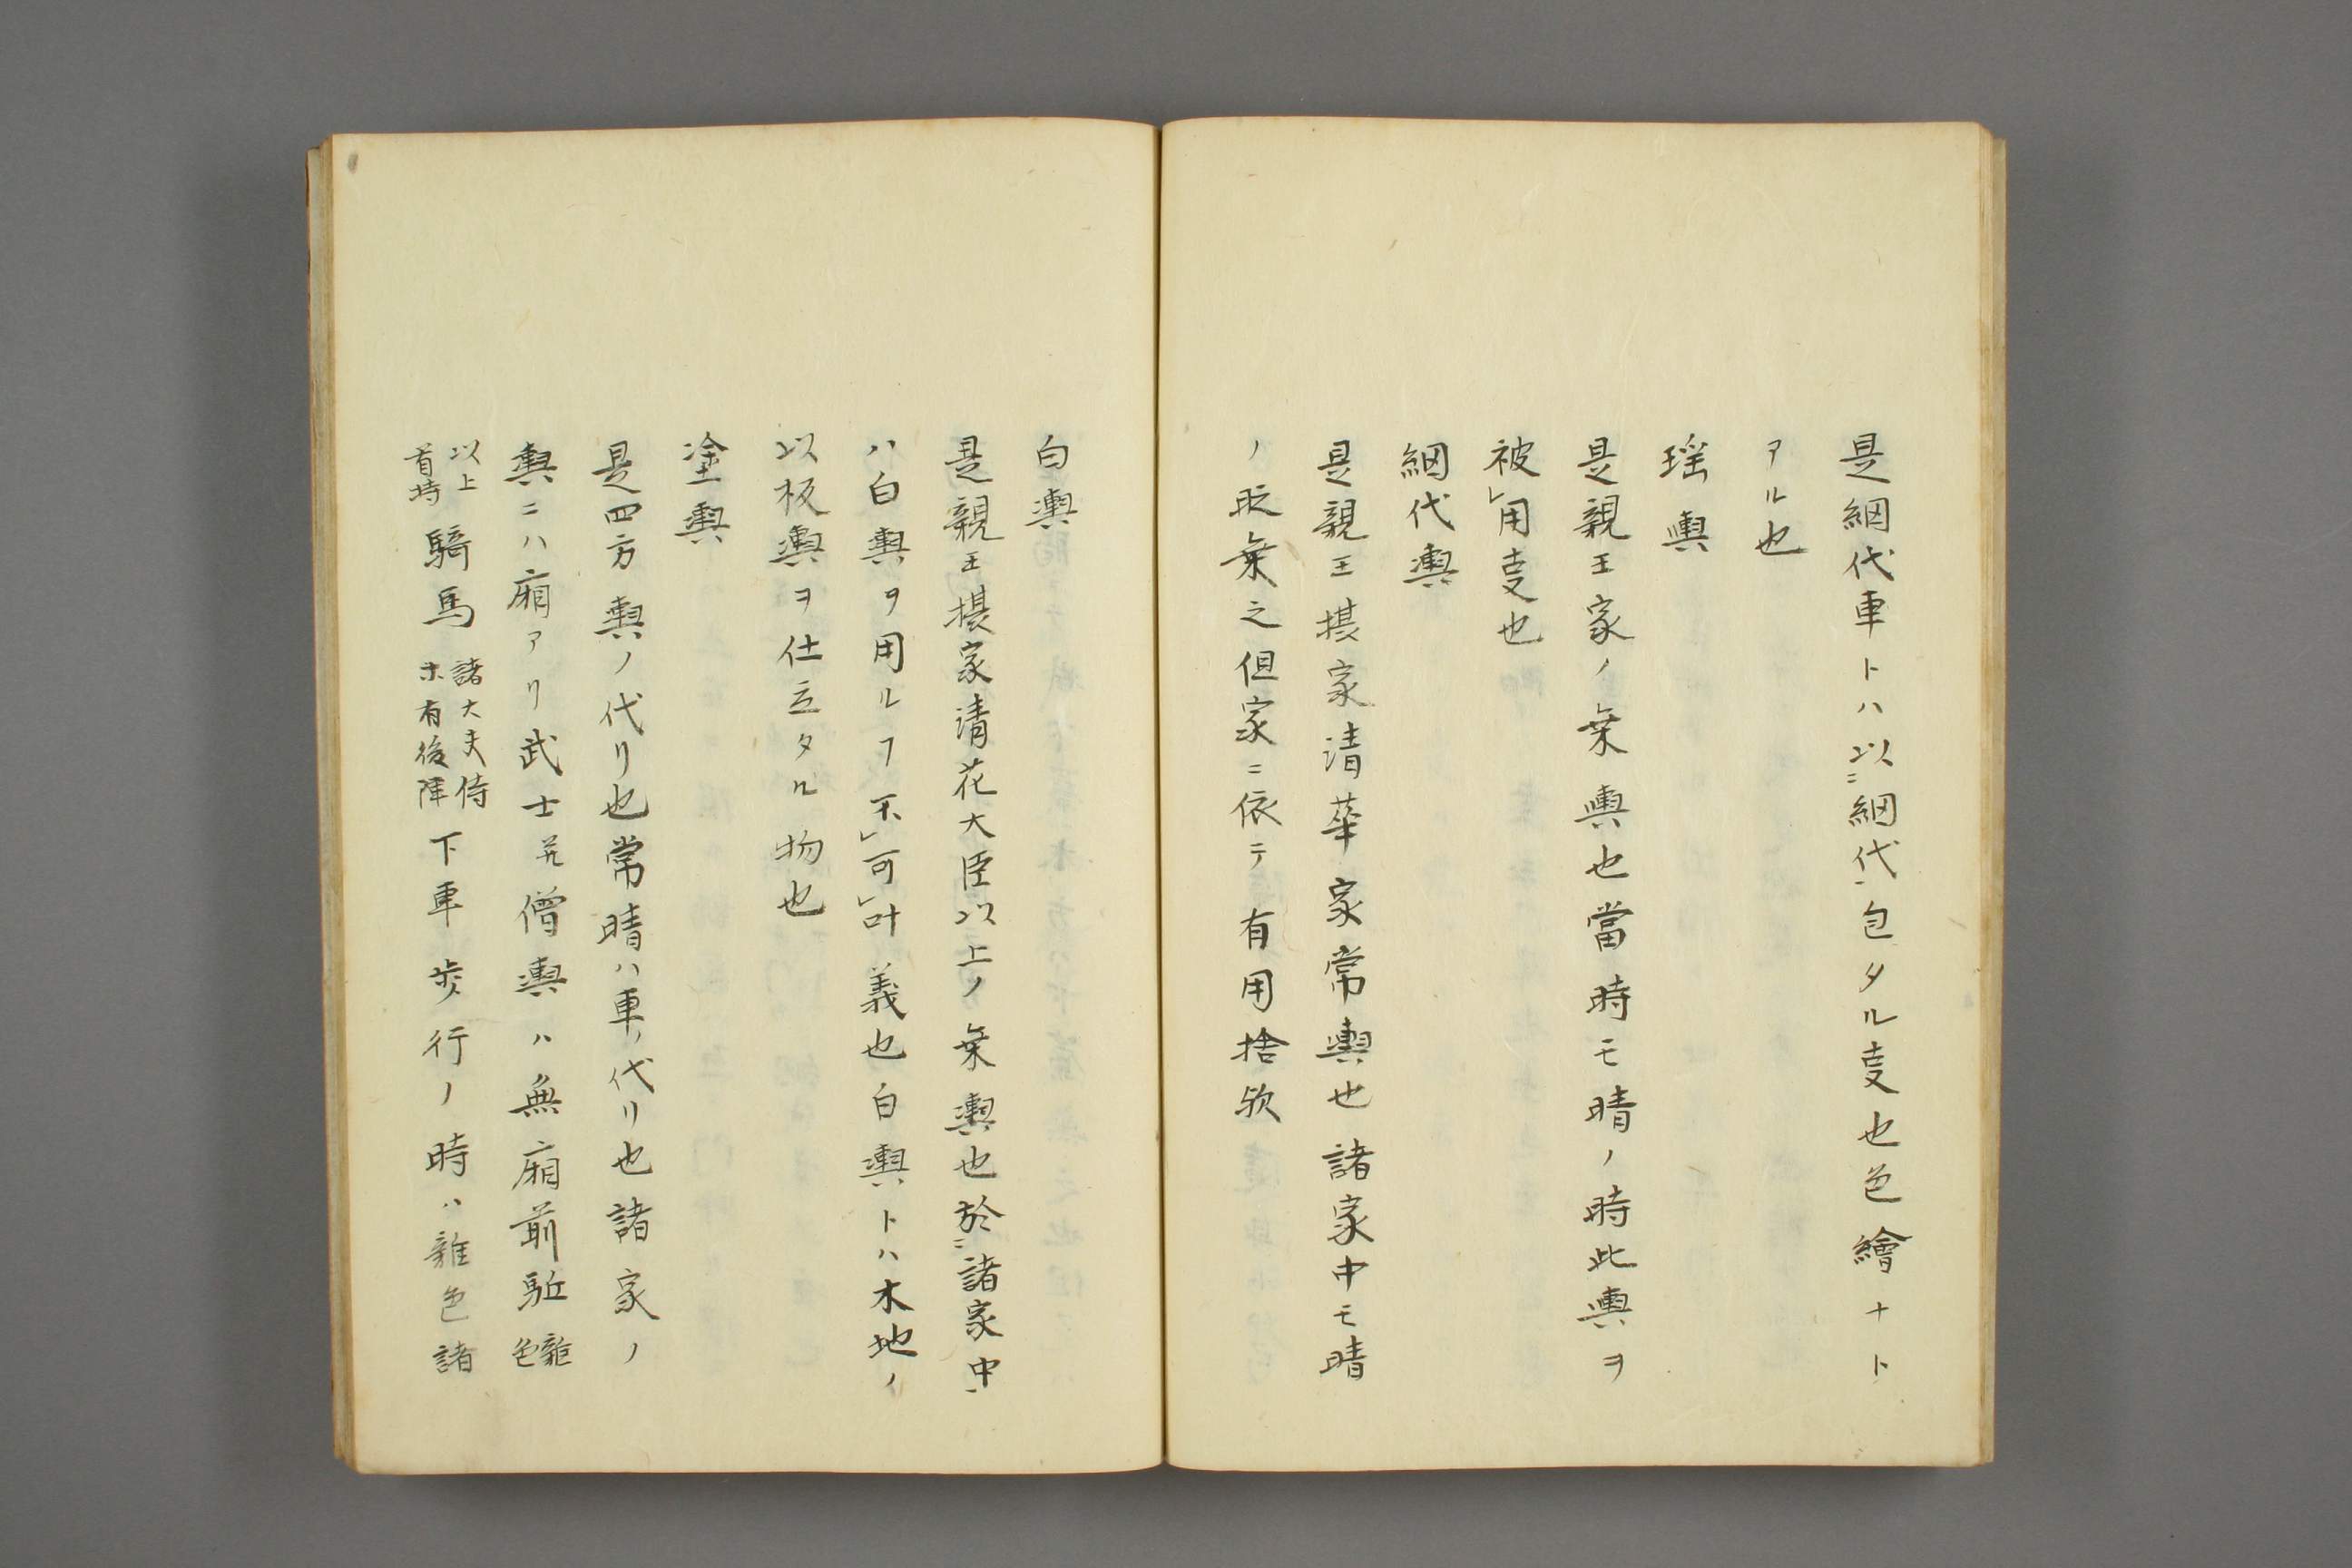 是綱代車トハ以ニ綱代一包タル叓也色繪ナト
アル也
瑶輿
是親王家ノ乗輿也當時モ晴ノ時此輿ヲ
被レ用叓也
綱代輿
是親王摂家清華家常輿也諸家中モ晴
ノ時乗之但家ニ依テ有用捨欤
白輿
是親王摂家清花大臣以上ノ乗輿也於ニ諸家中一
ハ白輿ヲ用ルヿ不レ可レ叶義也白輿トハ木地ノ
以板輿ヲ仕立タル物也
塗輿
是四方輿ノ代リ也常晴ハ車ノ代リ也諸家ノ
輿ニハ廂アリ武士并僧輿ハ無廂前駈雑色
以上首時騎馬諸大夫侍ホ有後陣下車歩行ノ時ハ雑色諸